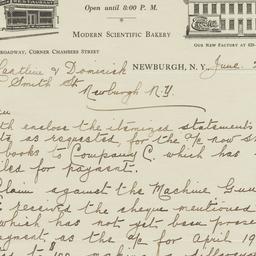 RESTAURANT
Open until 8:00 P. M.
MODERN SCIENTIFIC BAKERY
ROADWAY, CORNER CHAMBERS STREET
OUR NEW FACTORY AT 62
NEWBURGH, N. Y., June
& Dominick
Smith St
Newburgh N.Y.
enclose the itemized statements
as requested, for the a/c now
books to Company C. which has
for payment.
claim against the Machine Gun
receive the cheque mentioned
which has not yet been
as the a/c for April 19
making a